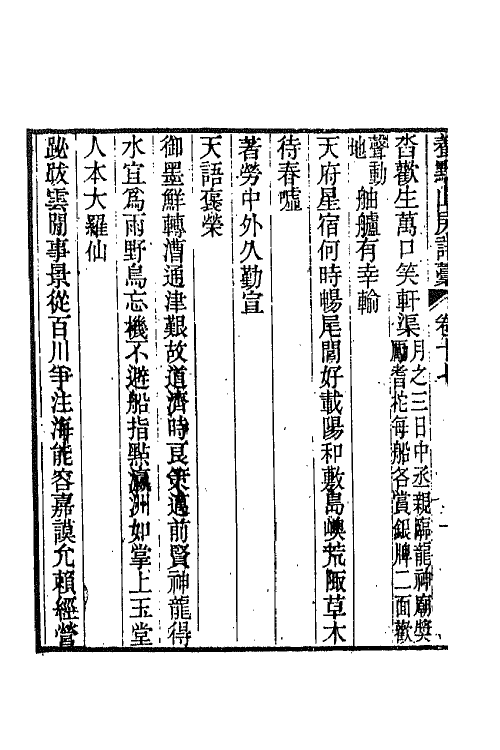 養默山房詩藁　卷十七
沓歡生萬口笑軒渠月之三日中丞親臨龍神廟獎
勵耆柁每船各賞銀牌二面歡
聲動地　舳艫有幸輸
天府星宿何時暢尾閭好載陽和敷島嶼荒陬草木
待春噓
著勞中外久勤宣
天語褒榮
御墨鮮轉漕通津艱故道濟時良策邁前賢神龍得
水宜爲雨野鳥忘機不避船指點瀛洲如掌上玉堂
人本大羅仙
跛跋雲閒事景從百川爭注海能容嘉謨允賴經營